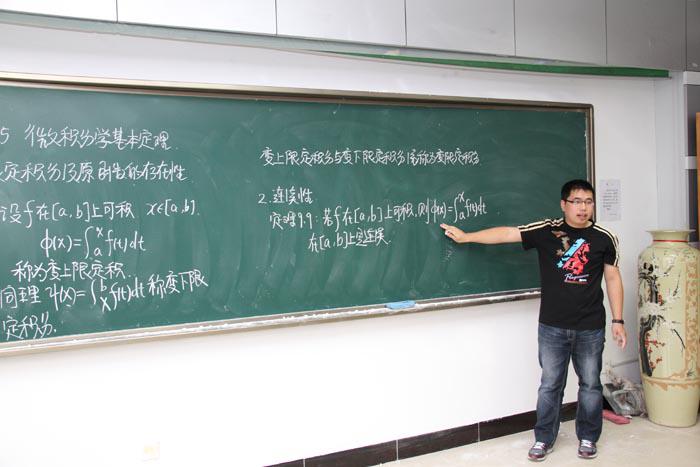 5 微积分学基本定理.
定积分及原函数的存在性
设f在[a,b]上可积 x∈[a,b].
φ(x)=∫ₐˣf(t)dt
称为变上限定积.
同理 ψ(x)=∫ₓᵇf(t)dt 称变下限
定积分.
变上限定积分与变下限定积分统称为变限定积分
2.连续性
定理9.9:若f在[a,b]上可积,则φ(x)=∫ₐˣf(t)dt
在[a,b]上连续.